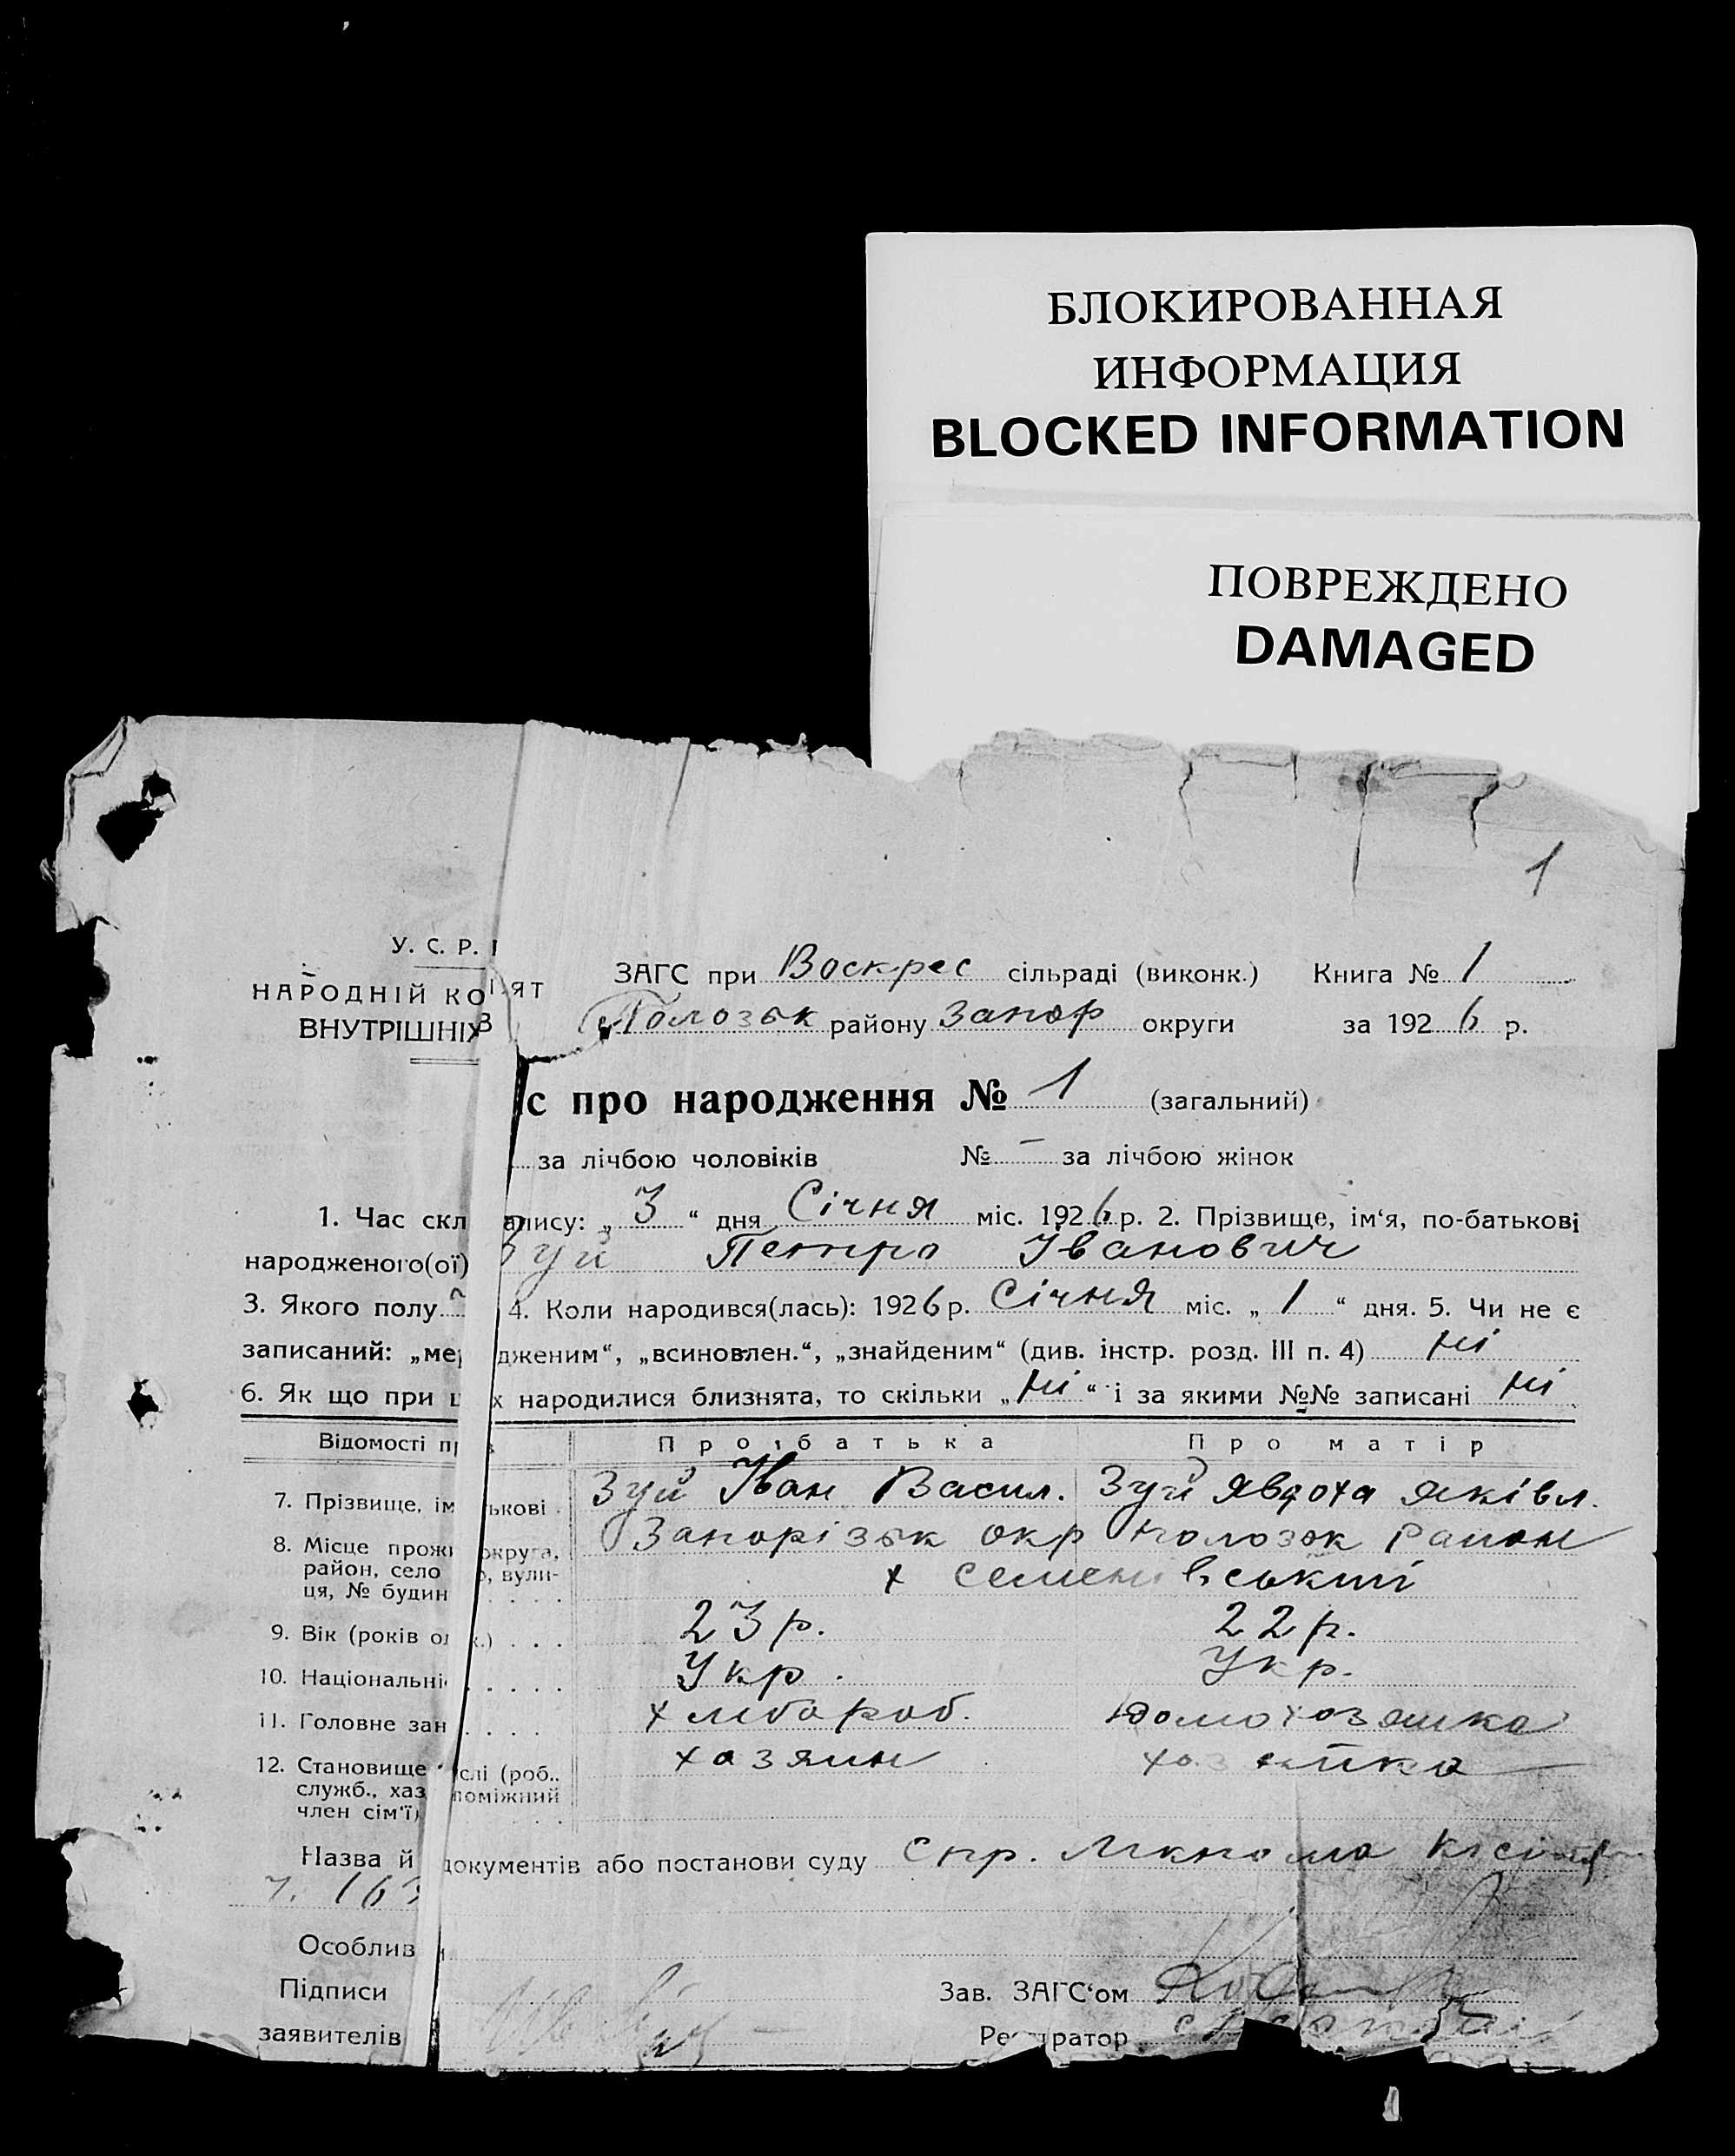 БЛОКИРОВАННАЯ
ИНФОРМАЦИЯ
BLOCKED INFORMATION
ПОВРЕЖДЕНО
DAMAGED
1
У. С. Р. Р
НАРОДНІЙ КО ІЯТ
ВНУТРІШНІХ В
ЗАГС при Воскрес сільраді (виконк.) Книга № 1
Полозьк району Запор округи за 1926 р.
с про народження № 1 (загальний)
за лічбою чоловіків № — за лічбою жінок
1. Час скл апису: „ 3 “ дня Січня міс. 1926 р. 2. Прізвище, ім'я, по-батькові
народженого(ої) Зуй Петро Іванович
3. Якого полу 4. Коли народився(лась): 1926 р. Січня міс. „ 1 “ дня. 5. Чи не є
записаний: „ме дженим“, „всиновлен.“, „знайденим“ (див. інстр. розд. III п. 4) ні
6. Як що при ц х народилися близнята, то скільки „ ні “ і за якими №№ записані ні
Відомості пр Про батька Про матір
7. Прізвище, ім ькові . Зуй Іван Васил. Зуй Явдоха Яківл.
8. Місце прожи округа, Запорізьк окр Полозьк район
район, село о, вули- х Семенівський
ця, № будин . . . .
9. Вік (років ) . . . 23 р. 22 р.
10. Національні . . . . . Укр. Укр.
11. Головне зан . . . . хлібороб. домохозяйка
12. Становище слі (роб.. хазяин хозяйка
служб., хаз поміжний
член сім'ї)
Назва й документів або постанови суду Спр.
ч. 163
Особлив
Підписи Зав. ЗАГС'ом
заявителів Реєстратор